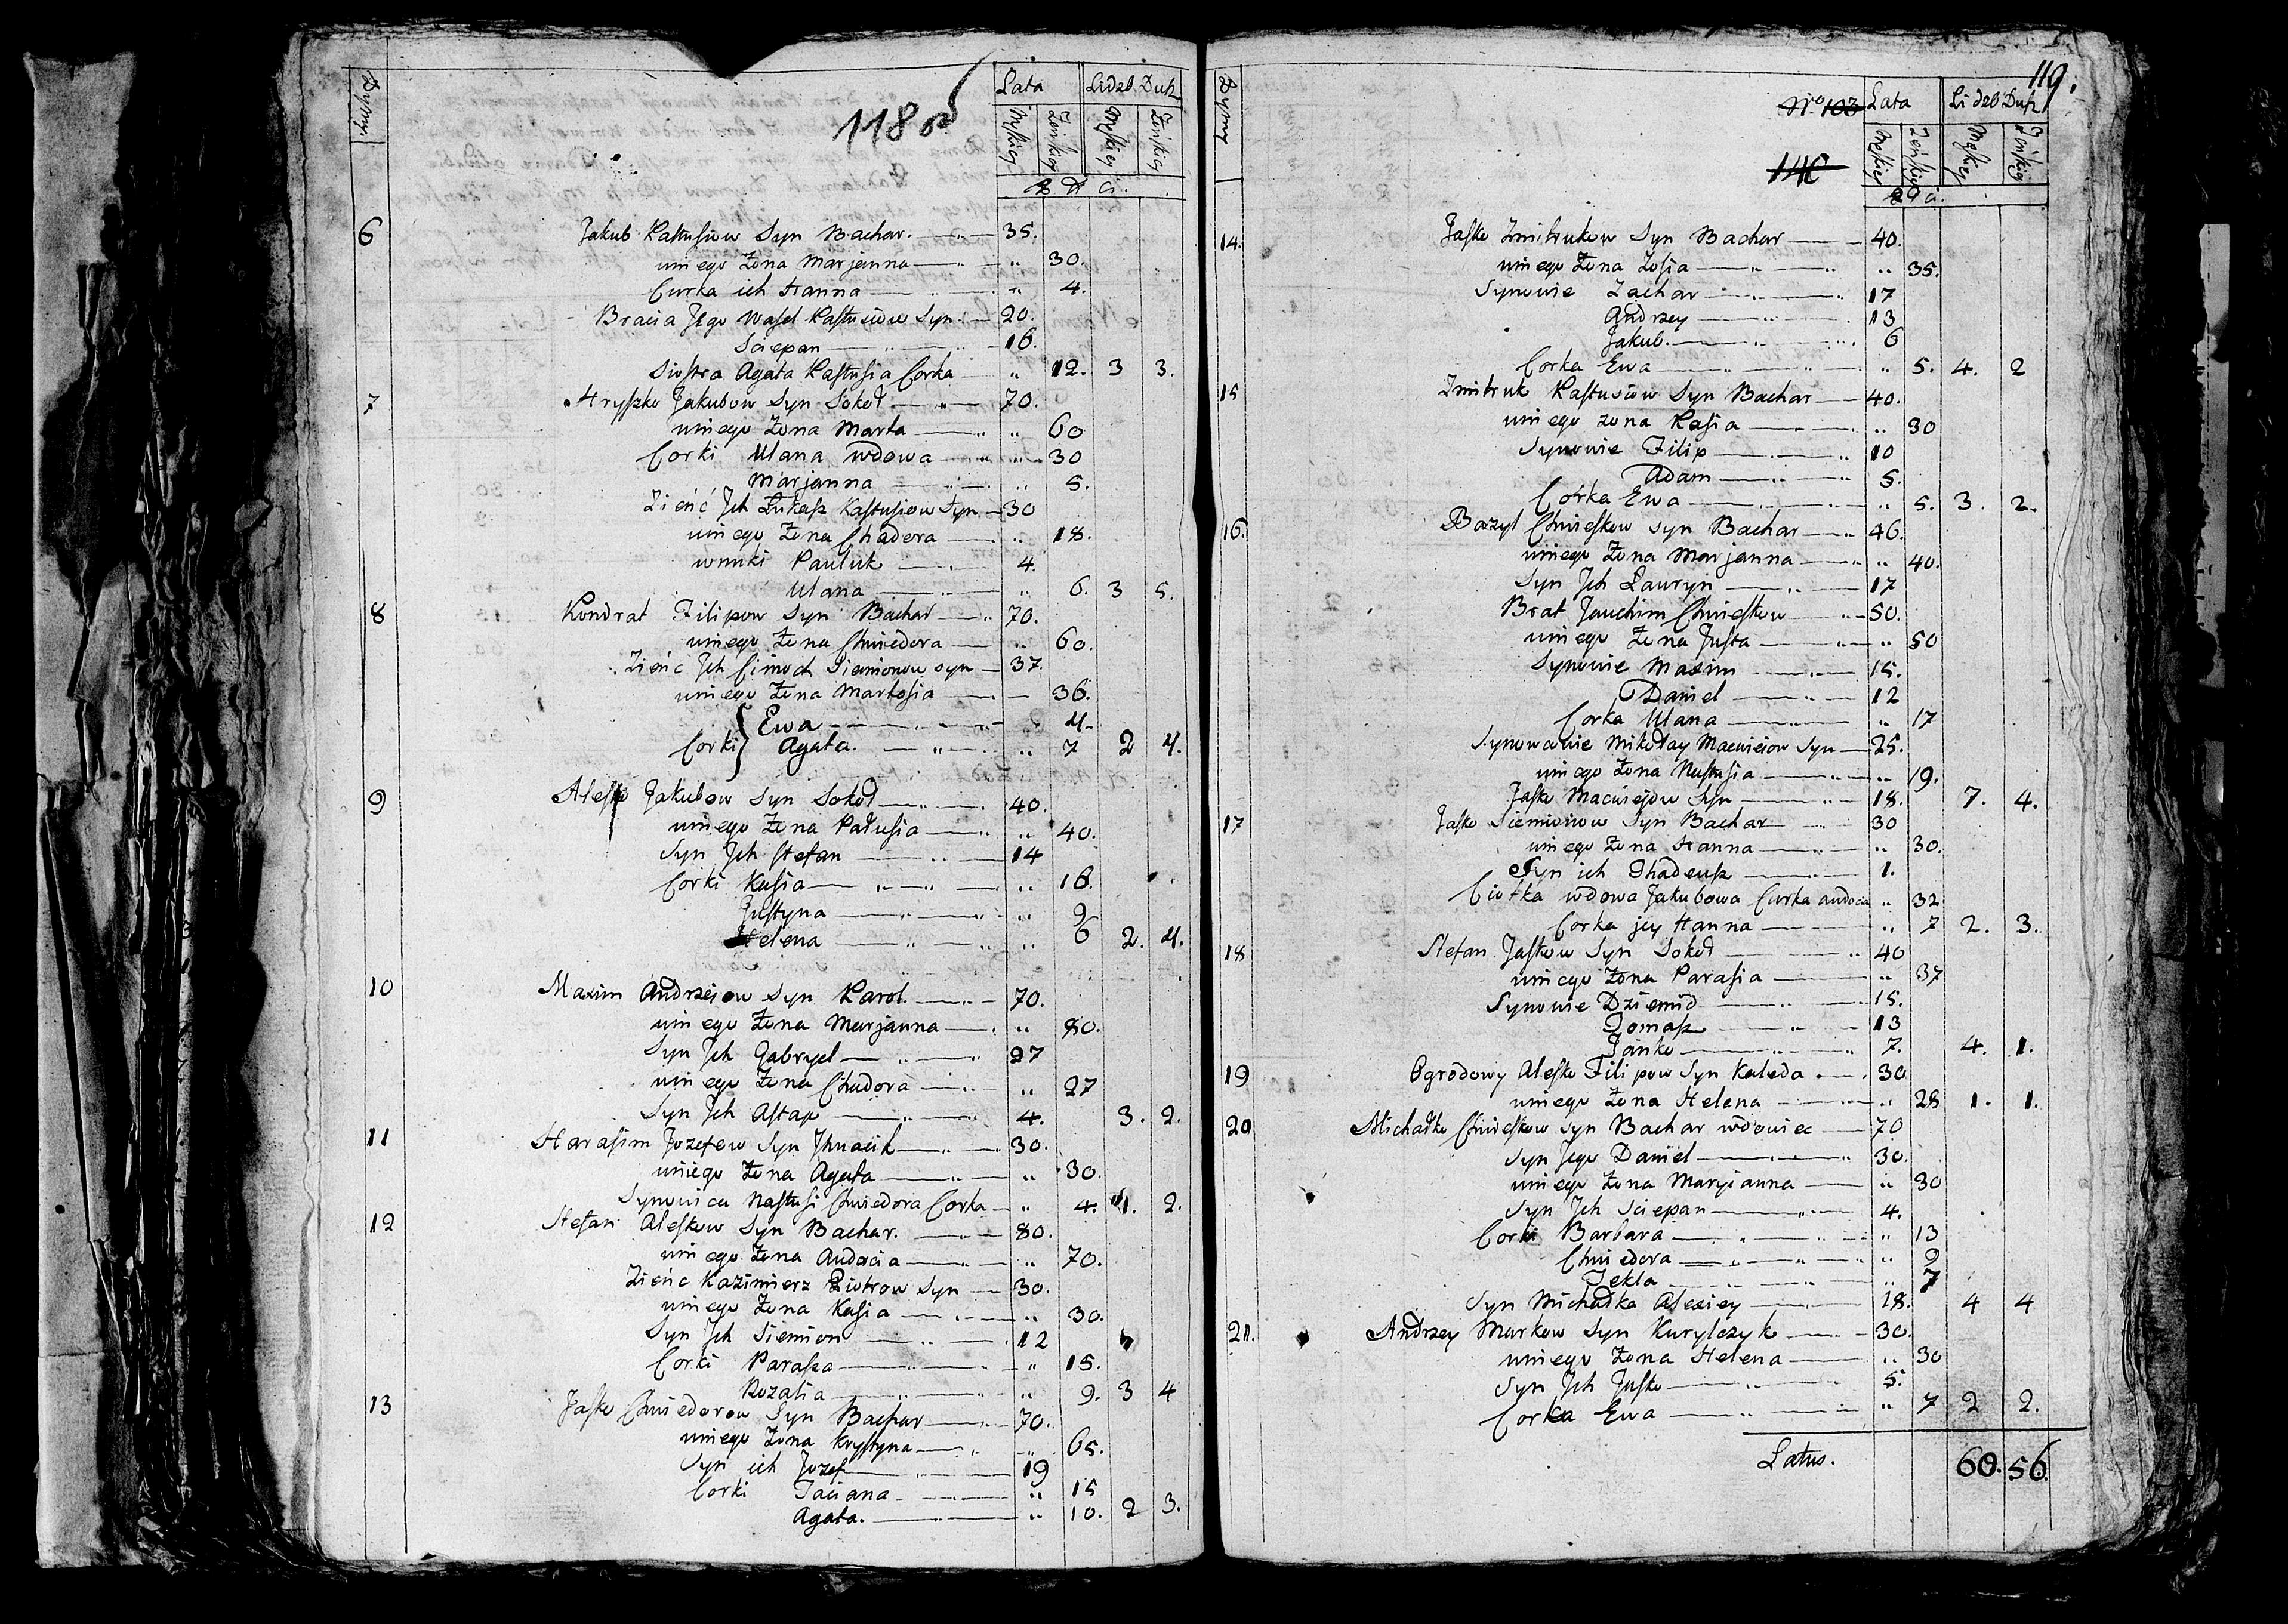 Dymy. 118 об Lata Liczb. Dusz
Męskiey Żeńskiey Męskiey Żeńskiey
6 Jakub Kastusiow Syn Bachar. 35.
u niego Żona Marjanna " 30.
Curka ich Hanna " 4.
Bracia Jego Wasil Kastusiow Syn 20.
Sciepan 16.
Siostra Agata Kastusia Corka " 12. 3 3.
7 Hryszko Jakubow Syn Sokoł 70.
u niego Żona Marta " 60
Corki Ulana wdowa " 30
Marjanna " 5.
Zięć Jch Łukasz Kastusiow Syn 30
u niego Żona Chadora " 18.
wnuki Pauluk 4.
Ulana " 6. 3 5.
8 Kondrat Filipow Syn Bachar 70.
u niego Żona Chwiedora " 60.
Zięć Jch Cimoch Siemionow syn 37
u niego Żona Martosia — 36.
Corki { Ewa 4.
Agata. " 7 2 4.
9 Alesko Jakubow Syn Sokoł 40.
u niego Żona Pałusia " 40.
Syn Jch Stefan 14
Corki Kasia " 16.
Justyna " 9
Helena " 6 2. 4.
10 Maxim Andrzeiow Syn Karol 70.
u niego Żona Marjanna " 80.
Syn Jch Gabryel 27
u niego Żona Chadora " 27
Syn Jch Astap 4. 3. 2.
11 Harasim Jozefow Syn Jhnacik 30.
u niego Żona Agata " 30.
Synowica Nastusi Chwiedora Corka " 4. 1. 2.
12 Stefan Aleskow Syn Bachar. 80.
u niego Żona Audocia " 70.
Zięć Kazimierz Piotrow Syn 30.
u niego Żona Kasia " 30.
Syn Jch Siemion 12
Corki Paraska " 15.
Rozalia " 9. 3 4
13 Jasko Chwiedorow Syn Bachar 70.
u niego Żona Krystyna " 65.
Syn ich Jozef 19
Corki Taciana " 15
Agata. " 10. 2 3.
119.
Dymy No 103 Lata Liczb Dusz
140 Męskiey Żeńskiey Męskiey Żeńskiey
14. Jasko Zmitrukow Syn Bachar 40.
u niego Żona Zosia " 35.
Synowie Zachar 17
Andrzey 13
Jakub. 6
Corka Ewa " 5. 4. 2
15 Zmitruk Kastusiow Syn Bachar 40.
u niego żona Kasia " 30
Synowie Filip 10
Adam 5.
Corka Ewa " 5. 3. 2.
16. Bazyl Chwieskow syn Bachar 46.
u niego Żona Marjanna " 40.
Syn Jch Lauryn 17
Brat Jauchim Chwieskow 50.
u niego Żona Justa " 50
Synowie Maxim 15.
Daniel 12
Corka Ulana " 17
Synowcowie Mikołay Macwieiow Syn 25.
u niego Żona Nastusia " 19.
Jasko Macwiejow Syn 18. 7. 4.
17 Jasko Siemionow Syn Bachar 30
u niego Żona Hanna " 30.
Syn ich Thadeusz 1.
Ciotka wdowa Jakubowa Curka audocia " 32
Corka jey Hanna " 7 2. 3.
18 Stefan Jaskow Syn Sokoł 40
u niego Żona Parasia " 37
Synowie Dziemid 15.
Domasz 13
Janko 7. 4. 1.
19 Ogrodowy Alesko Filipow Syn Kaleda 30
u niego Żona Helena " 28 1. 1.
20 Michałko Chwieskow syn Bachar wdowiec 70
Syn Jego Daniel 30.
u niego Żona Maryianna " 30
Syn Jch Sciepan 4.
Corki Barbara " 13
Chwiedora " 9
Tekla " 7
Syn Michałka Alexiey 18. 4 4
21. Andrzey Markow Syn Kurylczyk 30.
u niego Żona Helena " 30
Syn Jch Jasko 5.
Corka Ewa " 7 2 2.
Latus. 60. 56.